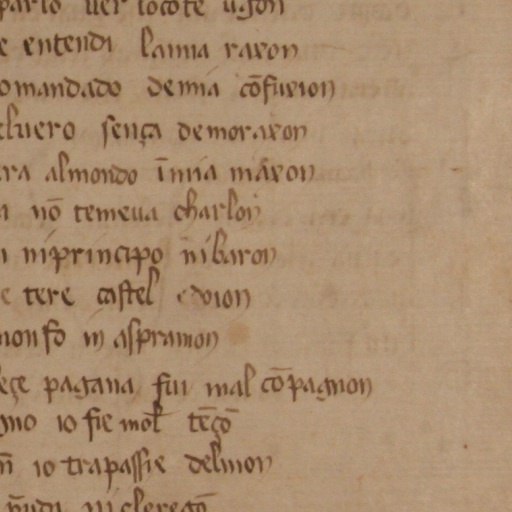 parlo ver locote ugon
e entendi lamia raxon
omandado demia cōfuxion
elvero sença demoraxon
ra almondo īmia māxon
a nō temeva charlon
n niprincipo nibaron
e tere castel edoion
mon fo in aspramon
eçe pagana fui mal cōpagnon
gno io fie molt tēçō
io trapassie delmon
ni cleregō